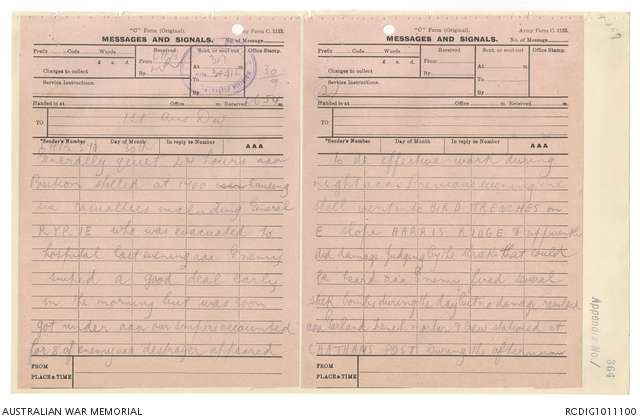 "C" Form (Original). Army Form C. 2123.
MESSAGES AND SIGNALS. No. of Message
Prefix Code Words
£ s. d.
Charges to collect
Service Instructions.
Received
From
By
Sent, or sent out
At m.
To
By
Office Stamp.
30
9
Handed in at Office m. Received 654 m.
TO 1st Aus Div
*Sender's Number Day of Month In reply to Number AAA
30th
Generally quiet 24 hours aaa
Position shelled at 1400 causing
six casualties including General
RYRIE who was evacuated to
hospital last evening aaa Enemy
sniped a good deal early
in the morning but was soon
got under aaa our snipers accounted
for 8 of enemy aaa destroyer appeared
FROM
PLACE & TIME
"C" Form (Original). Army Form C. 2123.
MESSAGES AND SIGNALS. No. of Message
Prefix Code Words
£ s. d.
Charges to collect
Service Instructions.
Received
From
By
Sent, or sent out
At m.
To
By
Office Stamp.
2/
Handed in at Office m. Received m.
TO
*Sender's Number Day of Month In reply to Number AAA
to do effective work during
night aaa Previous evening one
shell went into BIRD TRENCHES on
E slope HARRIS RIDGE & apparently
did damage judging by the that could
be heard aaa Enemy fired several
stick bombs during the day but no damage resulted
aaa Garland bench mortar & crew stationed at
CHATHAMS POST during the afternoon
FROM
PLACE & TIME
Appendix No. 1
364
AUSTRALIAN WAR MEMORIAL
RCDIG1011100